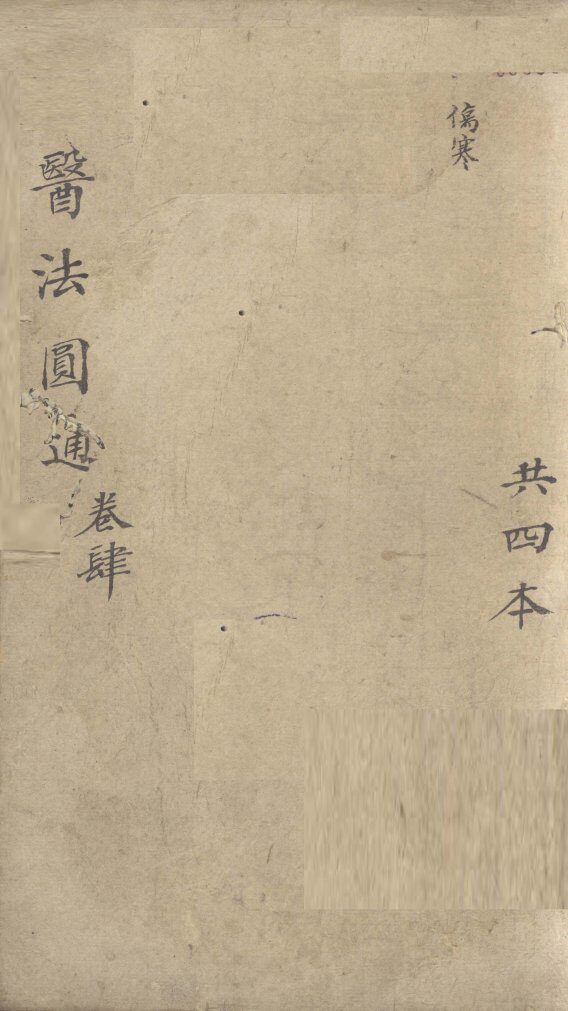 傷寒
共四本
醫法圓通
卷肆